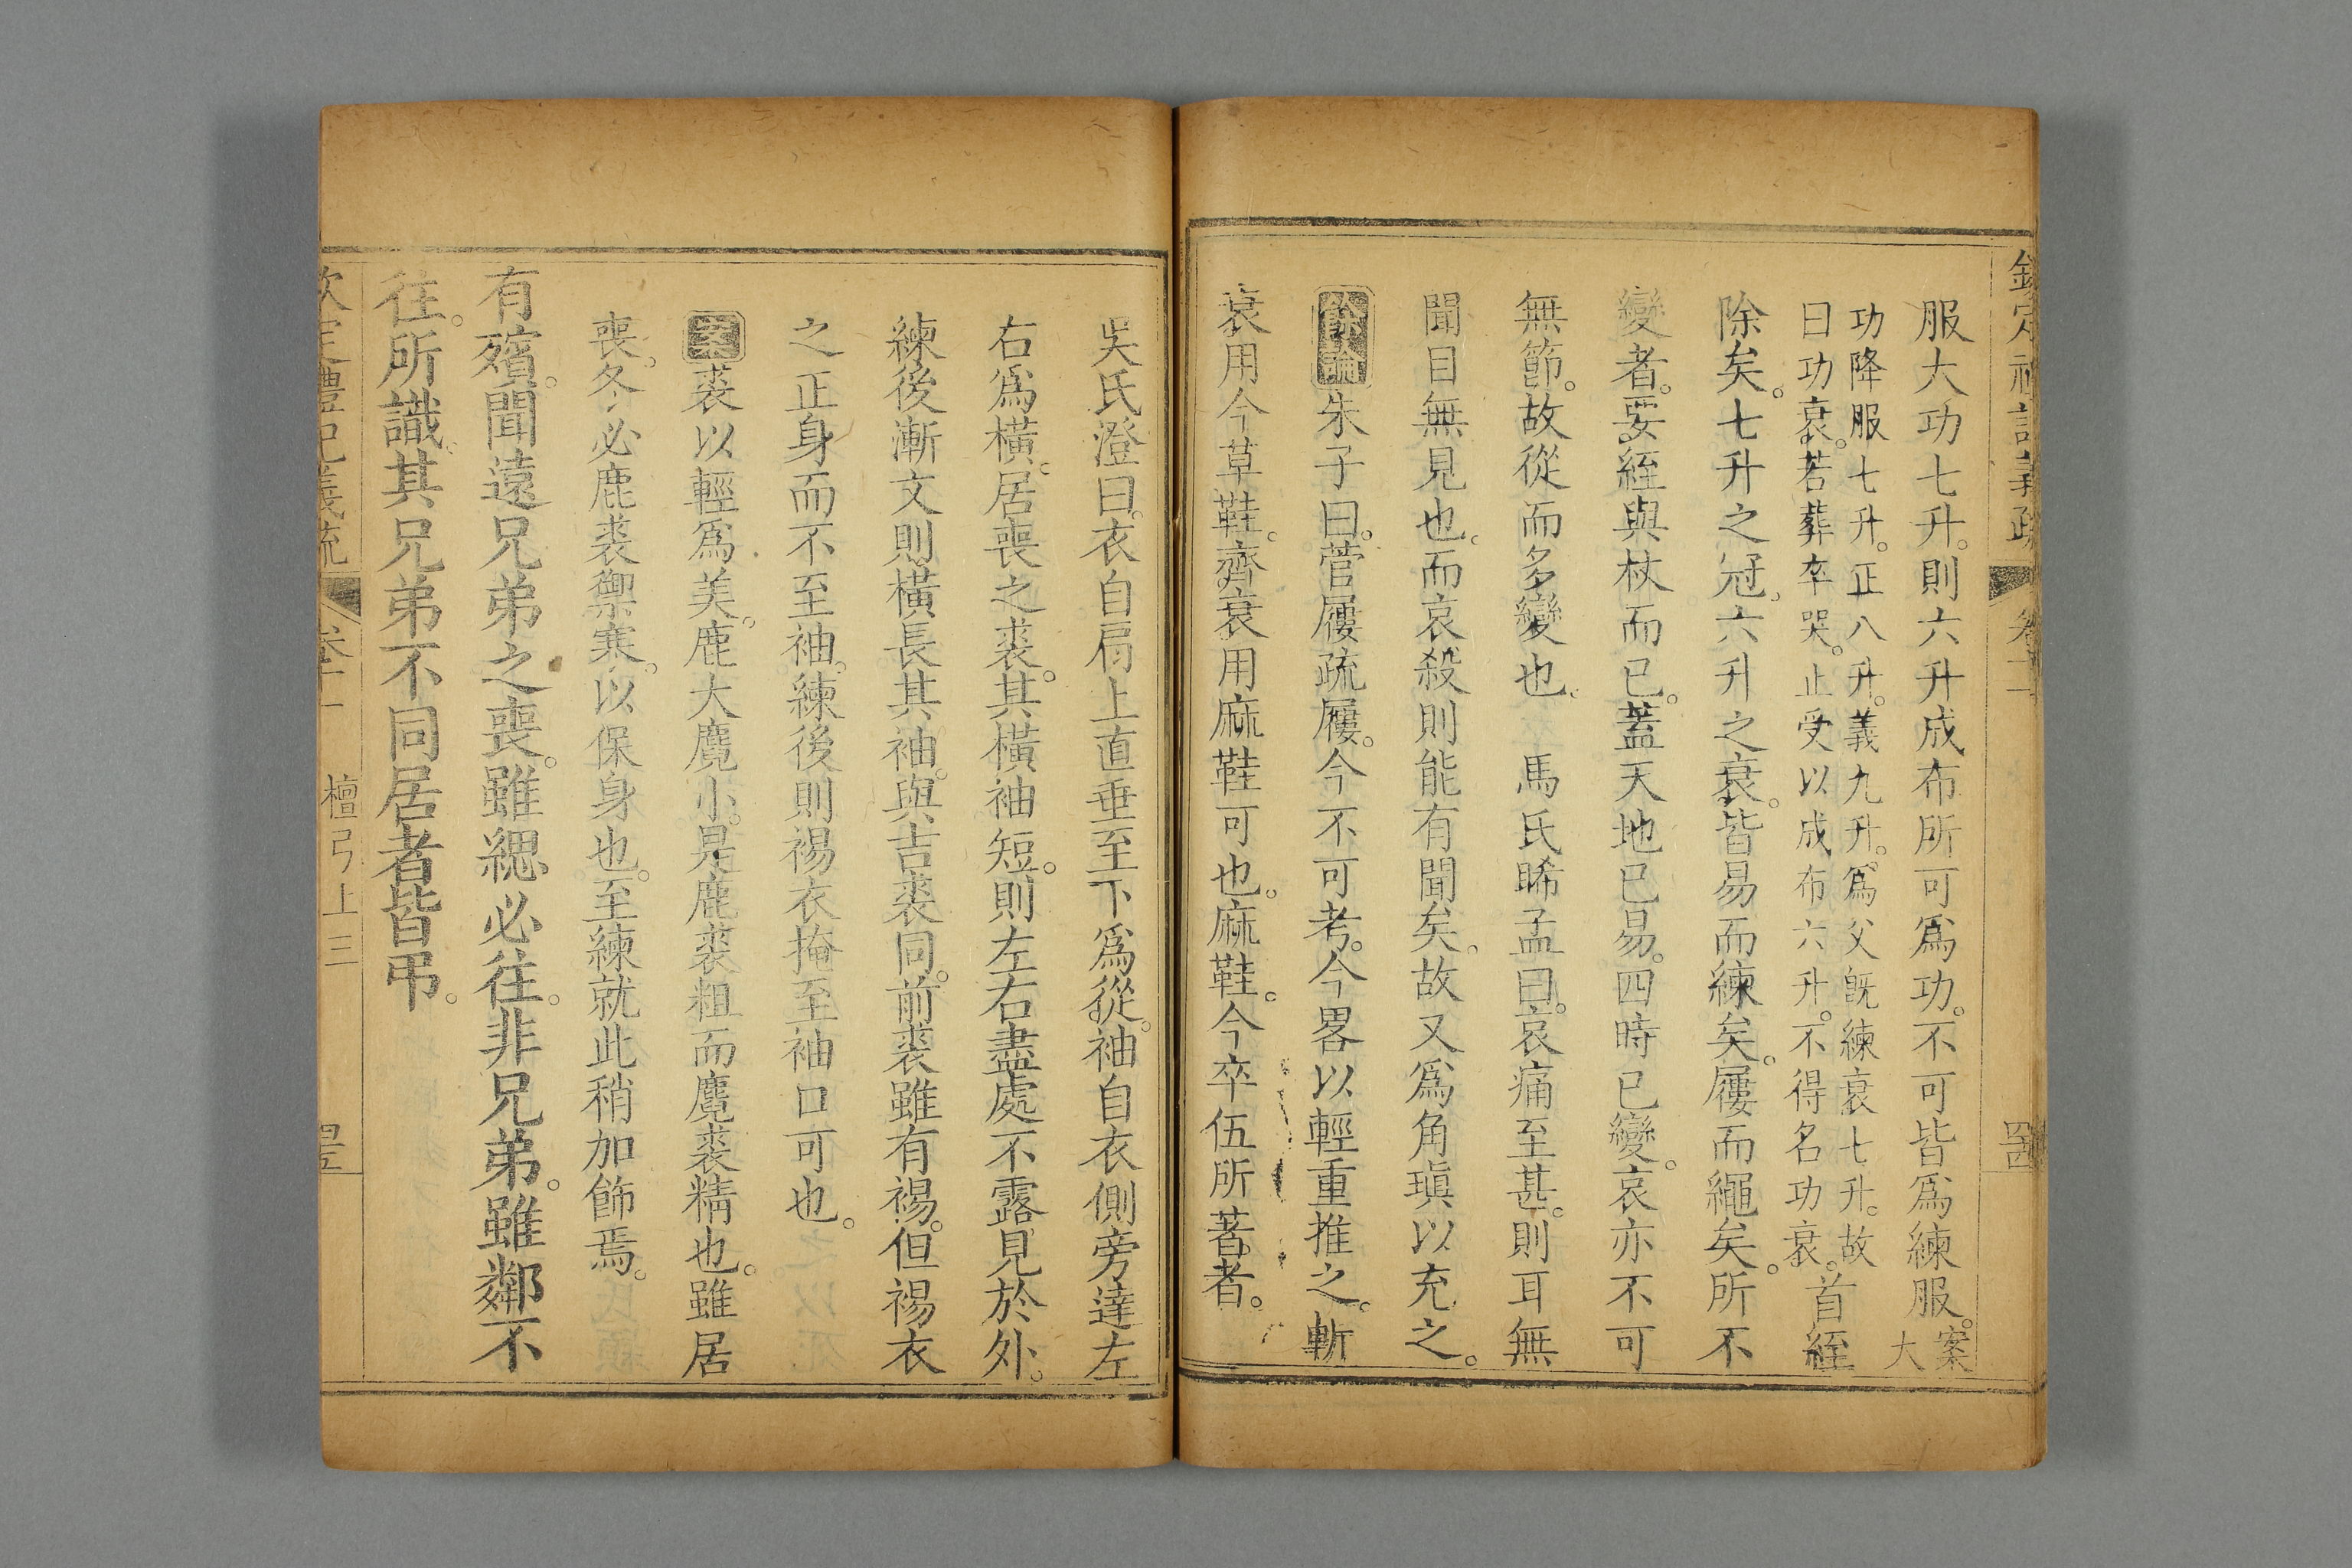 欽定禮記義疏 卷十一 四古
服大功七升。則六升成布所可爲功。不可皆爲練服。案大
功降服七升。正八升。義九升。爲父既練衰七升。故
曰功衰。若葬卒哭。止受以成布六升。不得名功衰。首絰
除矣。七升之冠。六升之衰。皆易而練矣。屨而繩矣。所不
變者。要絰與杖而已。蓋天地已易。四時已變。哀亦不可
無節。故從而多變也。 馬氏睎孟曰。哀痛至甚。則耳無
聞目無見也。而哀殺則能有聞矣。故又爲角瑱以充之。
餘論 朱子曰。菅屨疏屨。今不可考。今畧以輕重推之。斬
衰用今草鞋。齊衰用麻鞋可也。麻鞋。今卒伍所著者。
吳氏澄曰。衣自肩上直垂至下爲從。袖自衣側旁達左
右爲橫。居喪之裘。其橫袖短。則左右盡處不露見於外。
練後漸文則橫長其袖。與吉裘同。前裘雖有裼。但裼衣
之正身而不至袖。練後則裼衣掩至袖口可也。
案 裘以輕爲美。鹿大麑小。是鹿裘粗而麑裘精也。雖居
喪。冬必鹿裘禦寒。以保身也。至練就此稍加飾焉。
有殯。聞遠兄弟之喪。雖緦必往。非兄弟。雖鄰不
往。所識。其兄弟不同居者皆弔。
欽定禮記義疏 卷十一 檀弓上三